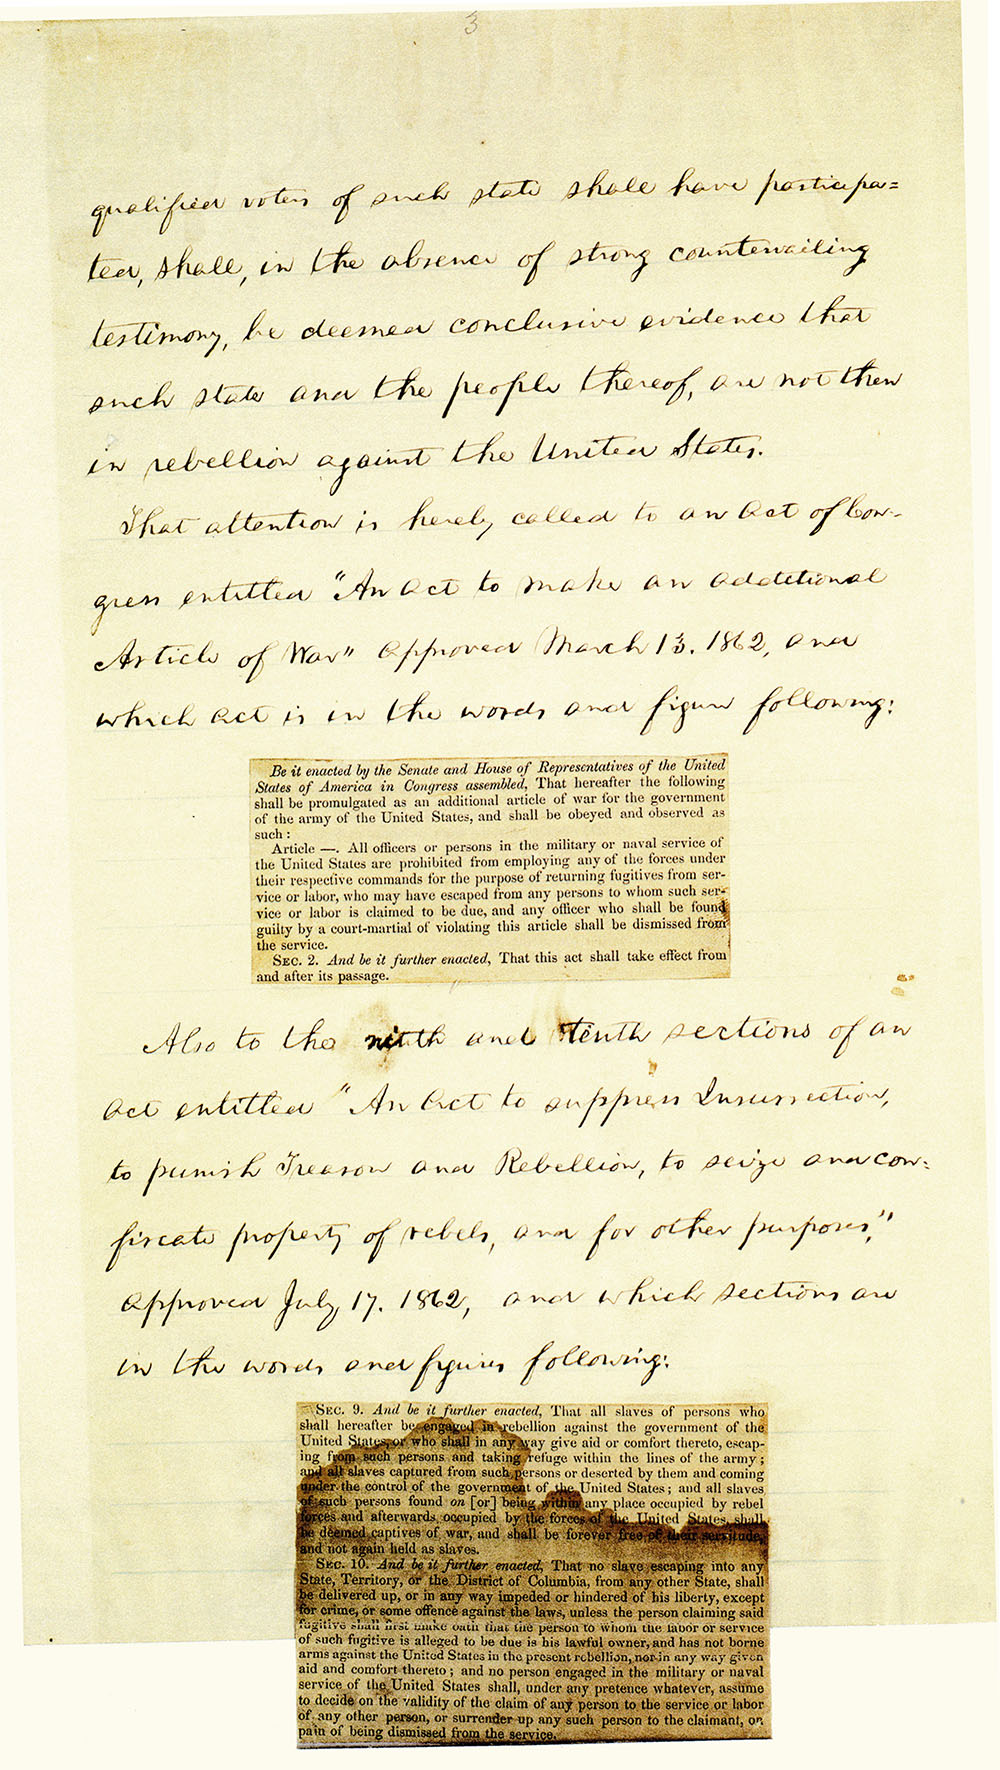 3
qualified voters of such state shall have participa=
ted, shall, in the absence of strong countervailing
testimony, be deemed conclusive evidence that
such state and the people thereof, are not then
in rebellion against the United States.
That attention is hereby called to an act of Con-
gress entitled "An act to make an additional
Article of War" approved March 13. 1862, and
which act is in the words and figure following:
Be it enacted by the Senate and House of Representatives of the United
States of America in Congress assembled, That hereafter the following
shall be promulgated as an additional article of war for the government
of the army of the United States, and shall be obeyed and observed as
such:
Article —. All officers or persons in the military or naval service of
the United States are prohibited from employing any of the forces under
their respective commands for the purpose of returning fugitives from ser-
vice or labor, who may have escaped from any persons to whom such ser-
vice or labor is claimed to be due, and any officer who shall be found
guilty by a court-martial of violating this article shall be dismissed from
the service.
SEC. 2. And be it further enacted, That this act shall take effect from
and after its passage.
Also to the ninth and tenth sections of an
act entitled "An Act to suppress Insurrection,
to punish Treason and Rebellion, to seize and con=
fiscate property of rebels, and for other purposes,"
approved July 17. 1862, and which sections are
in the words and figures following:
SEC. 9. And be it further enacted, That all slaves of persons who
shall hereafter be engaged in rebellion against the government of the
United States, or who shall in any way give aid or comfort thereto, escap-
ing from such persons and taking refuge within the lines of the army;
and all slaves captured from such persons or deserted by them and coming
under the control of the government of the United States; and all slaves
of such persons found on [or] being within any place occupied by rebel
forces and afterwards occupied by the forces of the United States, shall
be deemed captives of war, and shall be forever free of their servitude,
and not again held as slaves.
SEC. 10. And be it further enacted, That no slave escaping into any
State, Territory, or the District of Columbia, from any other State, shall
be delivered up, or in any way impeded or hindered of his liberty, except
for crime, or some offence against the laws, unless the person claiming said
fugitive shall first make oath that the person to whom the labor or service
of such fugitive is alleged to be due is his lawful owner, and has not borne
arms against the United States in the present rebellion, nor in any way given
aid and comfort thereto; and no person engaged in the military or naval
service of the United States shall, under any pretence whatever, assume
to decide on the validity of the claim of any person to the service or labor
of any other person, or surrender up any such person to the claimant, on
pain of being dismissed from the service.